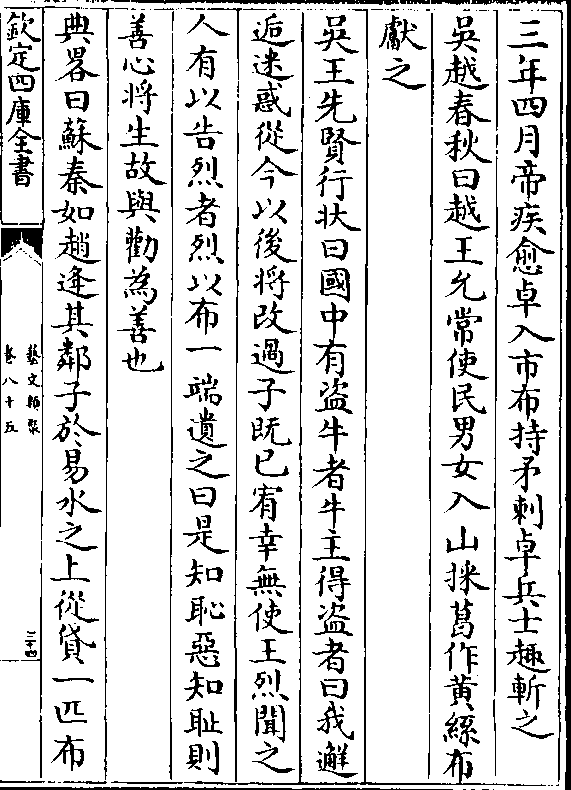 三年四月帝疾愈卓入市布持矛刺卓兵士趣斬之
吳越春秋曰越王允常使民男女入山採葛作黄絲布
獻之
吳王先賢行状曰國中有盗牛者牛主得盗者曰我邂
逅迷惑從今以後將改過子既已宥幸無使王烈聞之
人有以告烈者烈以布一端遺之曰是知恥惡知耻則
善心将生故與勸為善也
典畧曰蘇秦如趙逢其鄰子於易水之上從貸一匹布
欽定四庫全書
藝文類聚
卷八十五
三十四